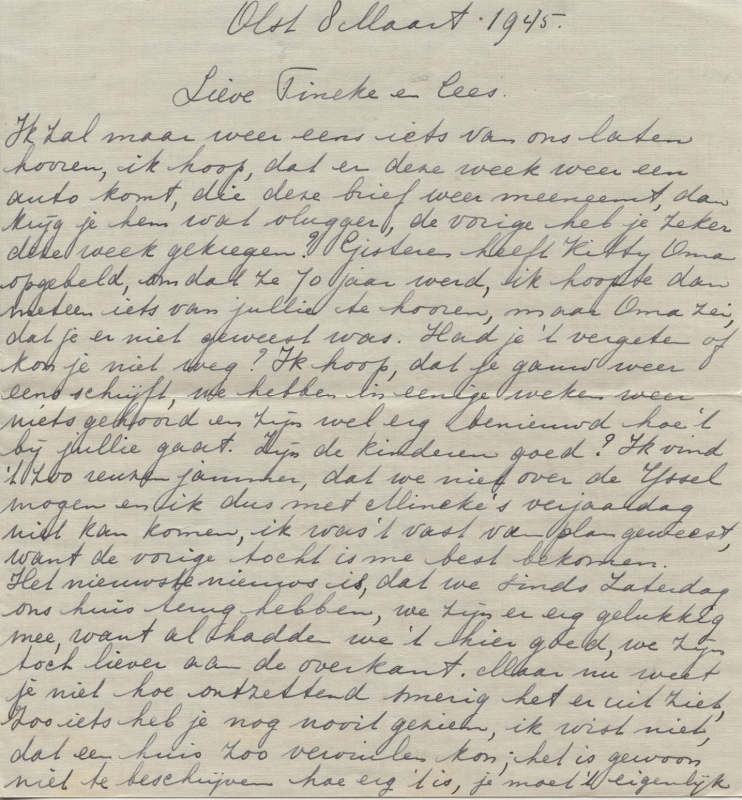 Olst 8 Maart. 1945.
Lieve Tineke en Cees.
Ik zal maar weer eens iets van ons laten
hooren, ik hoop, dat er deze week weer een
auto komt, die deze brief weer meeneemt, dan
krijg je hem wat vlugger, de vorige heb je zeker
deze week gekregen? Gisteren heeft Kitty Oma
opgebeld, omdat ze 70 jaar werd, ik hoopte dan
meteen iets van jullie te hooren, maar Oma zei,
dat je er niet geweest was. Had je 't vergeten of
kon je niet weg? Ik hoop, dat je gauw weer
eens schrijft, we hebben in eenige weken weer
niets gehoord en zijn wel erg benieuwd hoe 't
bij jullie gaat. Zijn de kinderen goed? Ik vind
't zoo reuzen jammer, dat we niet over de Yssel
mogen en ik dus met Mineke's verjaardag
niet kan komen, ik was 't vast van plan geweest,
want de vorige tocht is me best bekomen.
Het nieuwste nieuws is, dat we sinds Zaterdag
ons huis terug hebben, we zijn er erg gelukkig
mee, want al hadden we 't hier goed, we zijn
toch liever aan de overkant. Maar nu weet
je niet hoe ontzettend smerig het er uit ziet,
zoo iets heb je nog nooit gezien, ik wist niet,
dat een huis zoo vervuilen kon; het is gewoon
niet te beschrijven hoe erg 't is, je moet 't eigenlijk